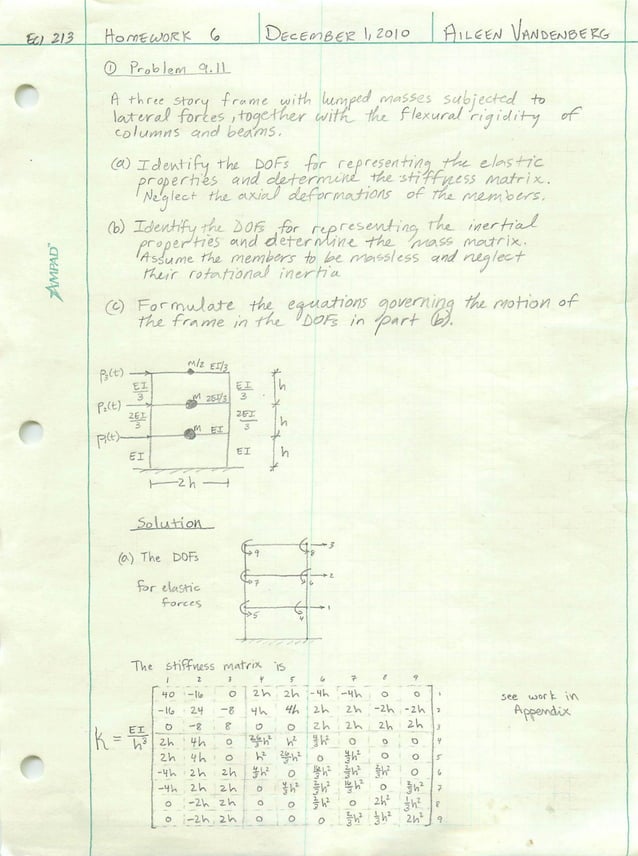 ECI 213 HOMEWORK 6 DECEMBER 1, 2010 AILEEN VANDENBERG
① Problem 9.11
A three story frame with lumped masses subjected to
lateral forces, together with the flexural rigidity of
columns and beams.
(a) Identify the DOFs for representing the elastic
properties and determine the stiffness matrix.
Neglect the axial deformations of the members.
(b) Identify the DOFs for representing the inertial
properties and determine the mass matrix.
Assume the members to be massless and neglect
their rotational inertia
AMPAD
(c) Formulate the equations governing the motion of
the frame in the DOFs in part (b).
m/2 EI/3
P3(t)
EI/3 EI/3 h
P2(t) m 2EI/3
2EI/3 2EI/3 h
P1(t) m EI
EI EI h
2h
Solution
(a) The DOFs
for elastic
forces
9 8 3
7 6 2
5 4 1
The stiffness matrix is
1 2 3 4 5 6 7 8 9
40 -16 0 2h 2h -4h -4h 0 0 1
-16 24 -8 4h 4h 2h 2h -2h -2h 2
0 -8 8 0 0 2h 2h 2h 2h 3
K = EI/h³
2h 4h 0 h² 0 0 0 4
2h 4h 0 h² 0 0 0 5
-4h 2h 2h 0 0 6
-4h 2h 2h 0 0 7
0 -2h 2h 0 0 0 2h² 8
0 -2h 2h 0 0 0 2h² 9
see work in
Appendix